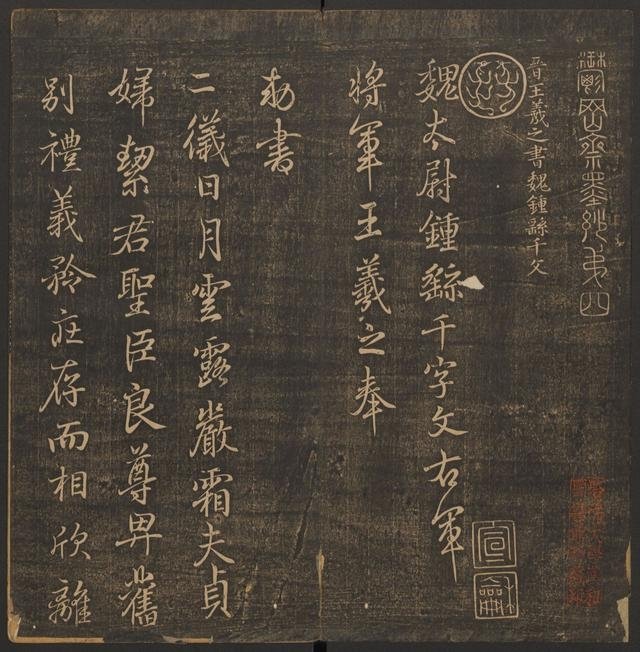 鬱岡齋墨妙第四
晉王羲之書魏鍾繇千文
魏太尉鍾繇千字文右軍
將軍王羲之奉
勅書
二儀日月雲露嚴霜夫貞
婦絜君聖臣良尊卑舊
別禮義矜莊存而相欣離
宣龢